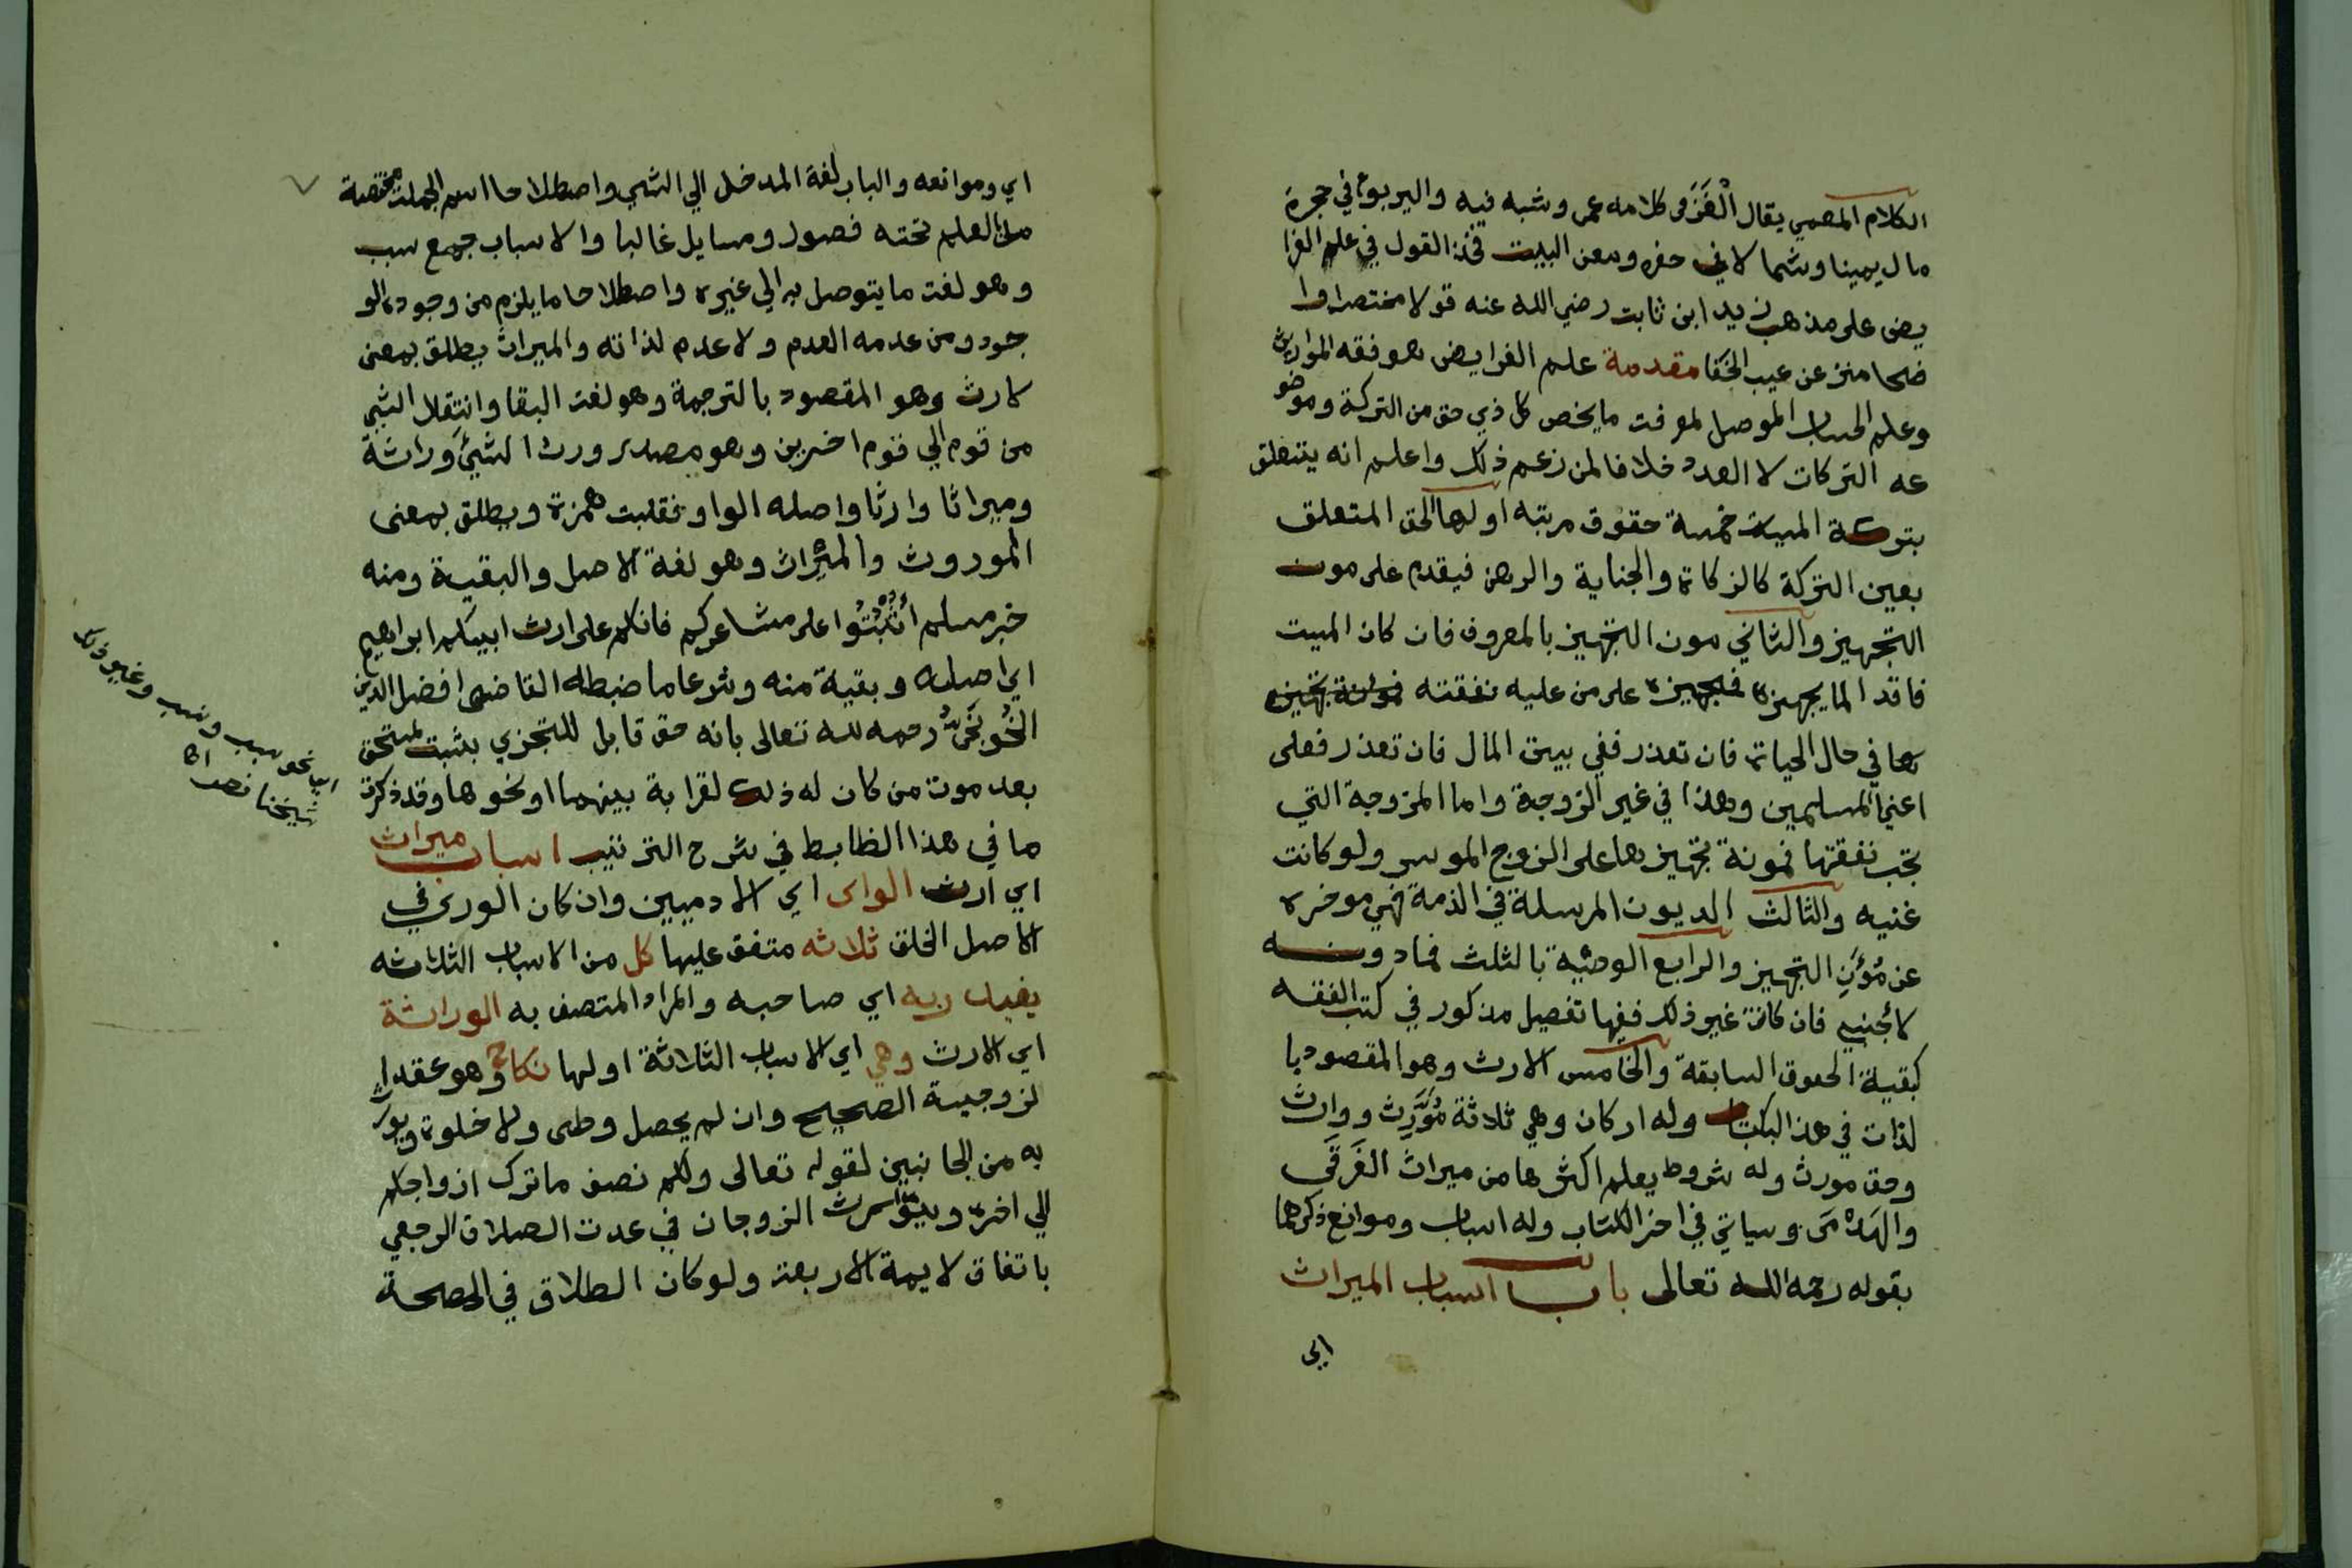 الكلام المعمي يقال الْغَزَ في كلامه عمي وشبه فيه واليربوع في حجره
مال يمينا وشمالا في حفره ومعن البيت فخذ القول في علم الفرا
يض على مذهب زيد ابن ثابت رضي الله عنه قولا مختصرا وا
ضحا منزه عن عيب الخفا مقدمة علم الفرايض هو فقه المواريث
وعلم الحساب الموصل لمعرفت ما يخص كل ذي حق من التركة وموضو
عه التركات لا العدد خلافا لمن زعم ذلك واعلم انه يتعلق
بتركة الميت خمسة حقوق مرتبه اولها الحق المتعلق
بعين التركة كالزكاة والجناية والرهن فيقدم على مون
التجهيز والثاني مون التجهيز بالمعروف فان كان الميت
فاقدا لما يجهزه فتجهيزه على من عليه نفقته
ها في حال الحياة فان تعذر ففي بيت المال فان تعذر فعلى
اغنيا المسلمين وهذا في غير الزوجة واما المزوجة التي
تجب نفقتها فمونة تجهيزها على الزوج الموسر ولو كانت
غنيه والثالث الديون المرسلة في الذمة فهي موخره
عن مُؤَنِ التجهيز والرابع الوصية بالثلث فما دونه
لأجنبي فان كانت غير ذلك ففيها تفصيل مذكور في كتب الفقه
كبقية الحقوق السابقة والخامس الارث وهو المقصود با
لذات في هذا الكتاب وله اركان وهي ثلاثة مُوَرِّث ووارث
وحق مورث وله شروط يعلم اكثرها من ميراث الغَرقَى
والهَدْمَى وسياتي في اخر الكتاب وله اسباب وموانع ذكرهما
بقوله رحمه الله تعالى باب اسباب الميراث
اي
اي وموانعه والباب لغة المدخل الي الشي واصطلاحا اسم لجملت مختصة
من العلم تحته فصول ومسايل غالبا والاسباب جمع سبب
وهو لغت ما يتوصل به الي غيره واصطلاحا ما يلزم من وجوده الو
جود ومن عدمه العدم ولا عدم لذاته والميراث يطلق بمعنى
لارث وهو المقصود بالترجمة وهو لغت البقا وانتقال الشي
من قوم الي قوم اخرين وهو مصدر ورث الشئ وراثة
وميراثا وارثا واصله الواو فقلبت همزة ويطلق بمعنى
الموروث والميراث وهو لغة الاصل والبقية ومنه
خبر مسلم اثْبُتُوا على مشاعركم فانكم على ارث ابيكم ابراهيم
اي اصله وبقية منه وشرعا ما ضبطه القاضي افضل الدين
الخُونَجي رحمه لله تعالى بانه حق قابل للتجزي يثبت لمستحق
بعد موت من كان له ذلك لقرابة بينهما او نحوها وقد ذكرت
ما في هذا الظابط في شرح الترتيب اسباب ميراث
اي ارث الورى اي الادميين وان كان الورى في
الاصل الخلق ثلاثه متفق عليها كل من الاسباب الثلاثه
يفيد ربه اي صاحبه والمراد المتصف به الوراثة
اي الارث وهي اي الاسباب الثلاثة اولها نكاح وهو عقد ا
لزوجية الصحيح وان لم يحصل وطى ولا خلوة ويور
به من الجانبين لقوله تعالى ولكم نصف ما ترك ازواجكم
الي اخره ويتوارث الزوجان في عدت الطلاق الرجعي
باتفاق لايمة الاربعت ولو كان الطلاق في الصحة
نحو سبب ونسب وغير ذلك
شيخنا